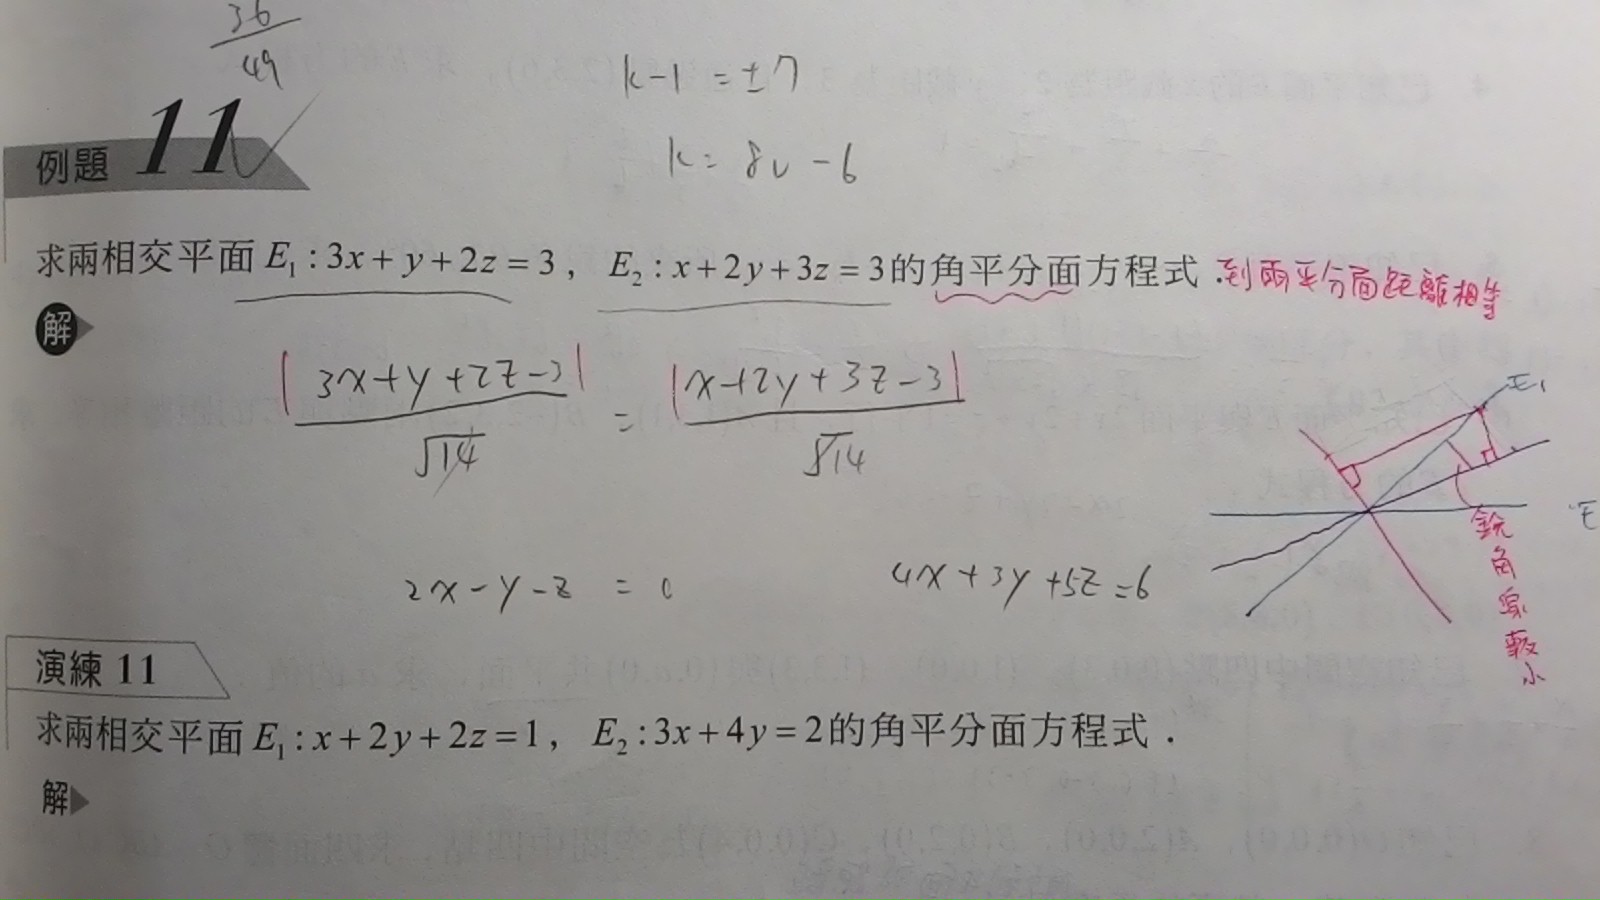 36
49
k-1=±7
k=8 ∨ -6
例題 11
求兩相交平面 E₁:3x+y+2z=3，E₂:x+2y+3z=3的角平分面方程式．到兩平分面距離相等
解
|3x+y+2z-3| / √14 = |x+2y+3z-3| / √14
E₁
E
2x-y-z=0
4x+3y+5z=6
銳角
較小
演練 11
求兩相交平面 E₁:x+2y+2z=1，E₂:3x+4y=2的角平分面方程式．
解